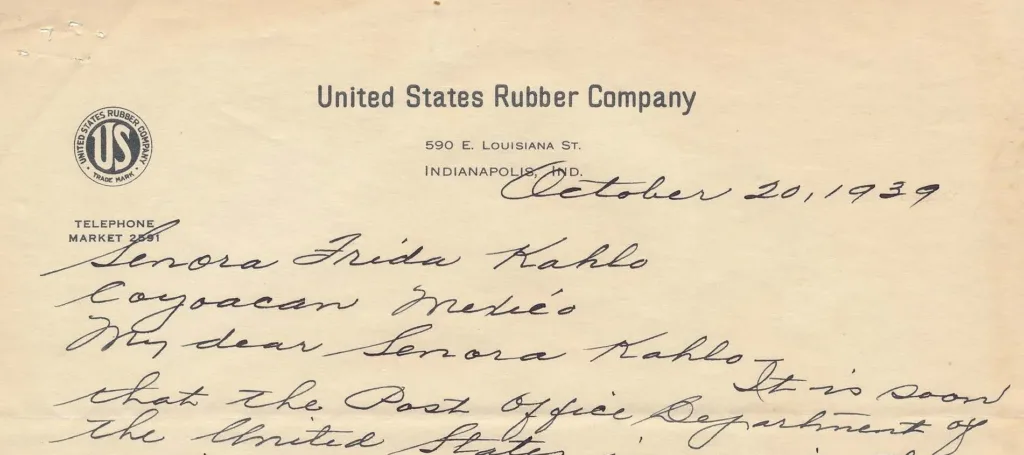 United States Rubber Company
590 E. Louisiana St.
Indianapolis, Ind.
UNITED STATES RUBBER COMPANY
US
TRADE MARK
October 20, 1939
TELEPHONE
MARKET 2591
Senora Frida Kahlo
Coyoacan Mexico
My dear Senora Kahlo-
It is soon
that the Post Office Department of
the United States